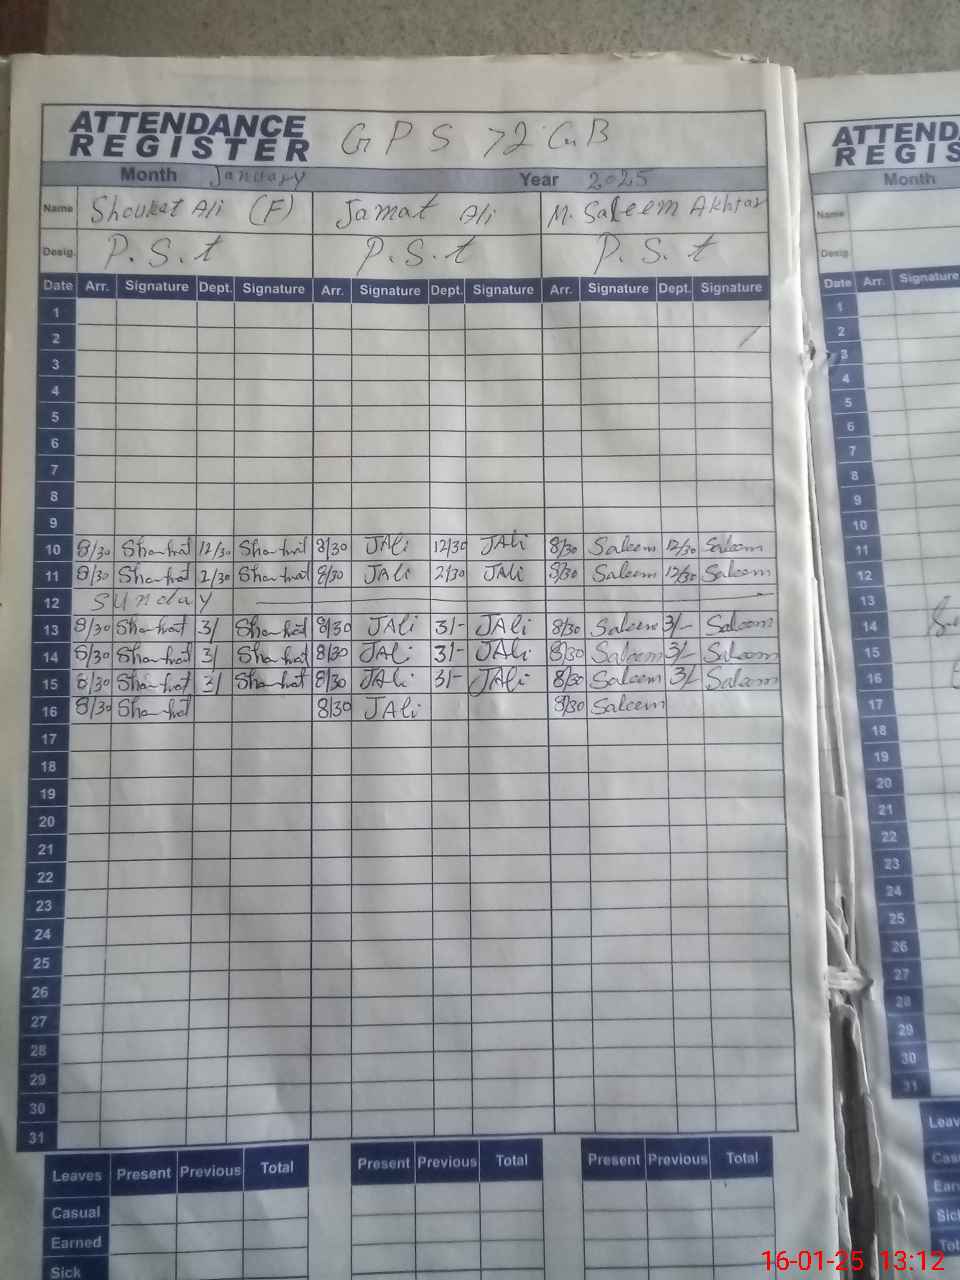 ATTENDANCE REGISTER GPS 72 GB
Month January Year 2025
Name Shoukat Ali (F) Jamat Ali M. Saleem Akhtar
Desig. P.S.t P.S.t P.S.t
Date Arr. Signature Dept. Signature Arr. Signature Dept. Signature Arr. Signature Dept. Signature
1
2
3
4
5
6
7
8
9
10 8/30 Shoukat 12/30 Shoukat 8/30 JAli 12/30 JAli 8/30 Saleem 12/30 Saleem
11 8/30 Shoukat 2/30 Shoukat 8/30 JAli 2/30 JAli 8/30 Saleem 12/30 Saleem
12 Sunday
13 8/30 Shoukat 3/ Shoukat 8/30 JAli 3/- JAli 8/30 Saleem 3/- Saleem
14 8/30 Shoukat 3/ Shoukat 8/30 JAli 3/- JAli 8/30 Saleem 3/- Saleem
15 8/30 Shoukat 3/ Shoukat 8/30 JAli 3/- JAli 8/30 Saleem 3/- Saleem
16 8/30 Shoukat 8/30 JAli 8/30 Saleem
17
18
19
20
21
22
23
24
25
26
27
28
29
30
31
Leaves Present Previous Total Present Previous Total Present Previous Total
Casual
Earned
Sick
ATTEND
REGIS
Month
Name
Desig.
Date Arr. Signature
1
2
3
4
5
6
7
8
9
10
11
12
13
14
15
16
17
18
19
20
21
22
23
24
25
26
27
28
29
30
31
Leav
Cas
Ear
Sic
Tot
16-01-25 13:12